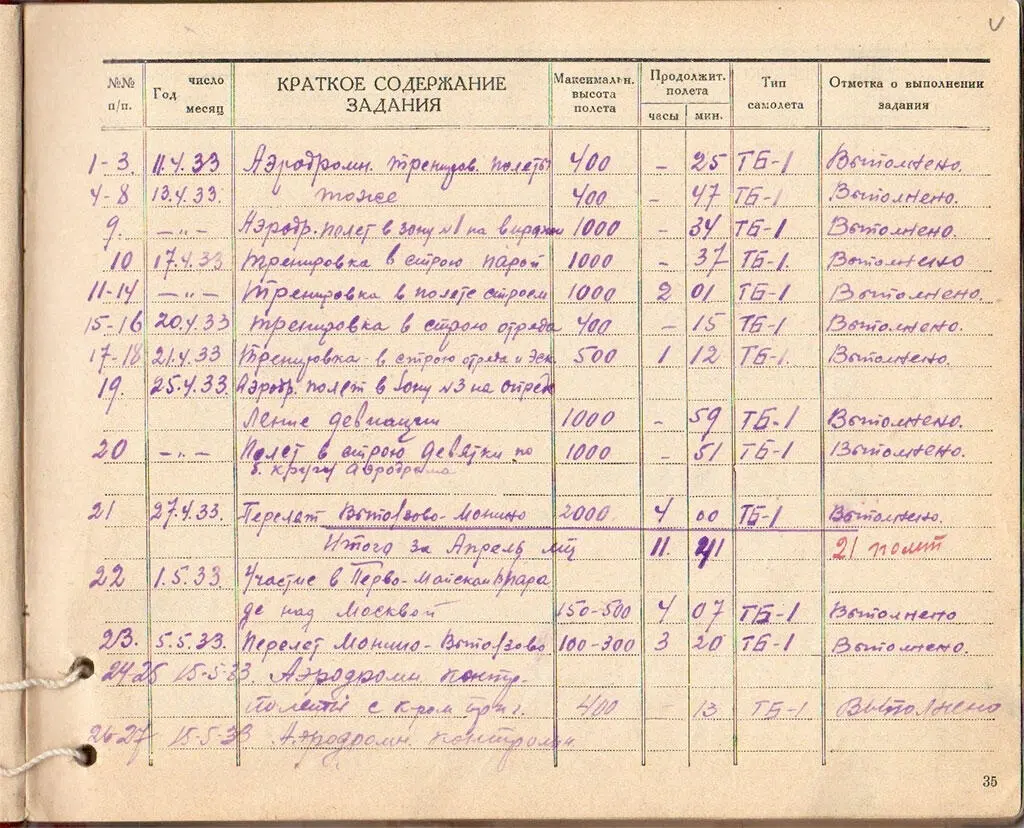 №№ п/п. Год число месяц КРАТКОЕ СОДЕРЖАНИЕ ЗАДАНИЯ Максимальн. высота полета Продолжит. полета часы мин. Тип самолета Отметка о выполнении задания
1-3. 11.4.33 Аэродромн. трениров. полеты 400 - 25 ТБ-1 Выполнено.
4-8 13.4.33. тоже 400 - 47 ТБ-1 Выполнено.
9. —„— Аэродр. полет в зону №1 на виражи 1000 - 34 ТБ-1 Выполнено.
10 17.4.33 тренировка в строю парой 1000 - 37 ТБ-1. Выполнено
11-14 —„— Тренировка в полете строем 1000 2 01 ТБ-1 Выполнено.
15-16 20.4.33 тренировка в строю отряда 400 - 15 ТБ-1 Выполнено.
17-18 21.4.33 Тренировка в строю отряда и Эск 500 1 12 ТБ-1. Выполнено.
19. 25.4.33. Аэродр. полет в зону №3 на опреде
ление девиации 1000 - 59 ТБ-1 Выполнено.
20 —„— Полет в строю девятки по 1000 - 51 ТБ-1 Выполнено.
б. кругу аэродрома
21 27.4.33. Перелет Выползово-Монино 2000 4 00 ТБ-1 Выполнено.
Итого за Апрель м-ц 11 41 21 полет
22 1.5.33. Участие в Перво-Майском пара
де над Москвой 150-500 4 07 ТБ-1 Выполнено
23. 5.5.33. Перелет Монино-Выползово 100-300 3 20 ТБ-1 Выполнено.
24-25 15-5-33. Аэродромн. контр.
полеты с 400 - 13 ТБ-1 Выполнено
26-27 15-5-33 Аэродромн.
35